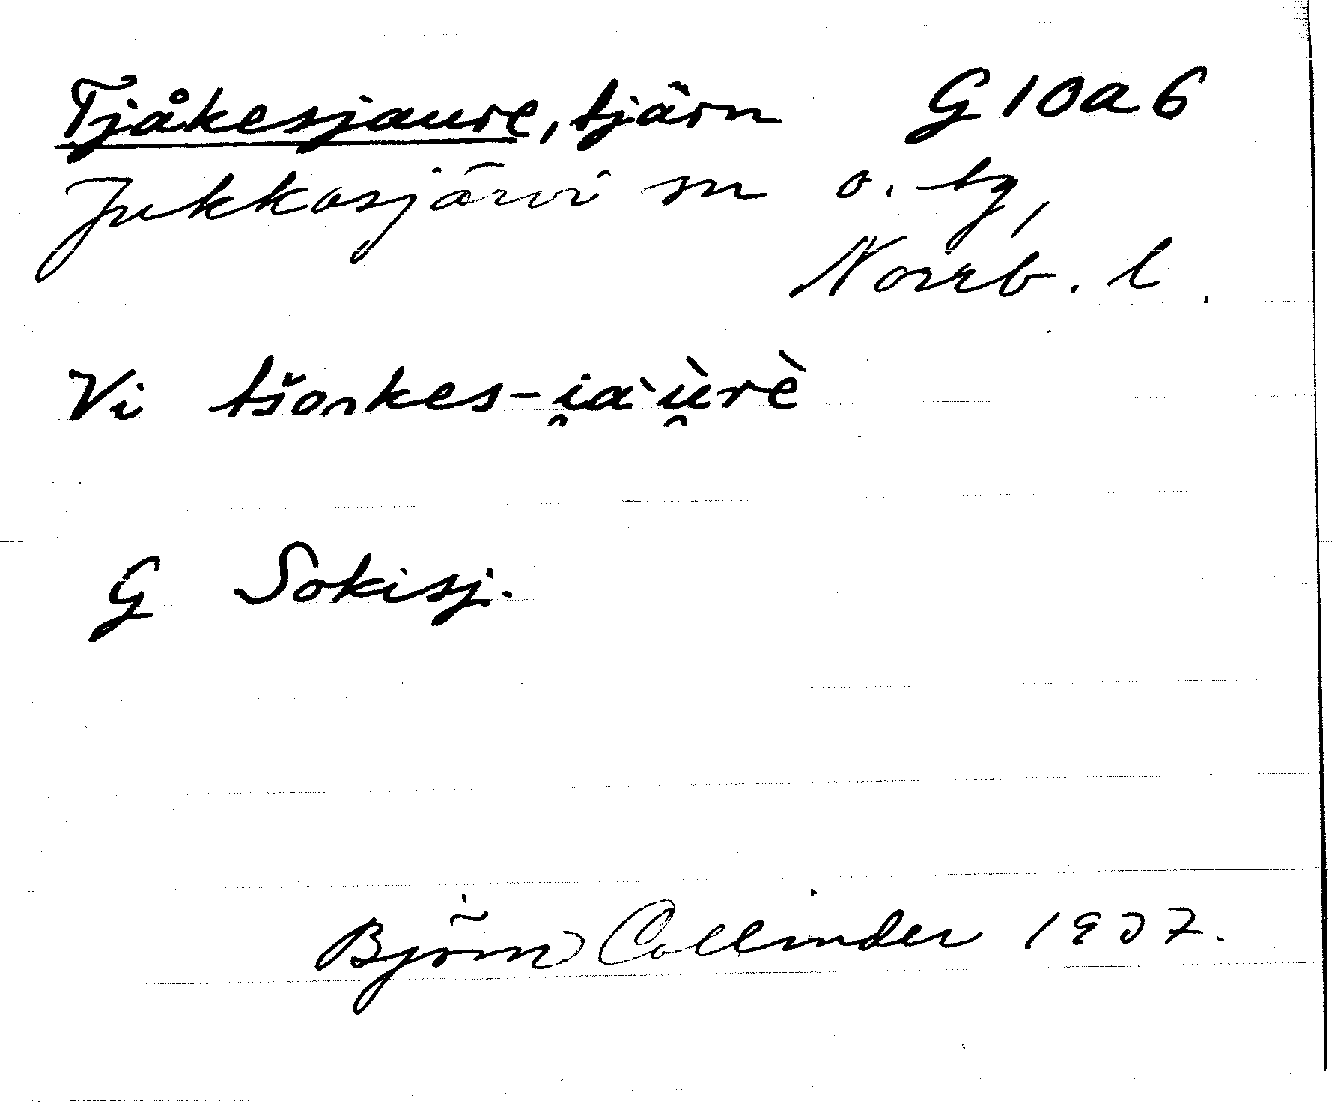 Tjåkesjaure, tjärn G10a6
Jukkasjärvi sn o. tg,
Norrb. l.
Vi tšoₙkes-i̯aˋù̯rè
G Sokisj.
Björn Collinder 1937.